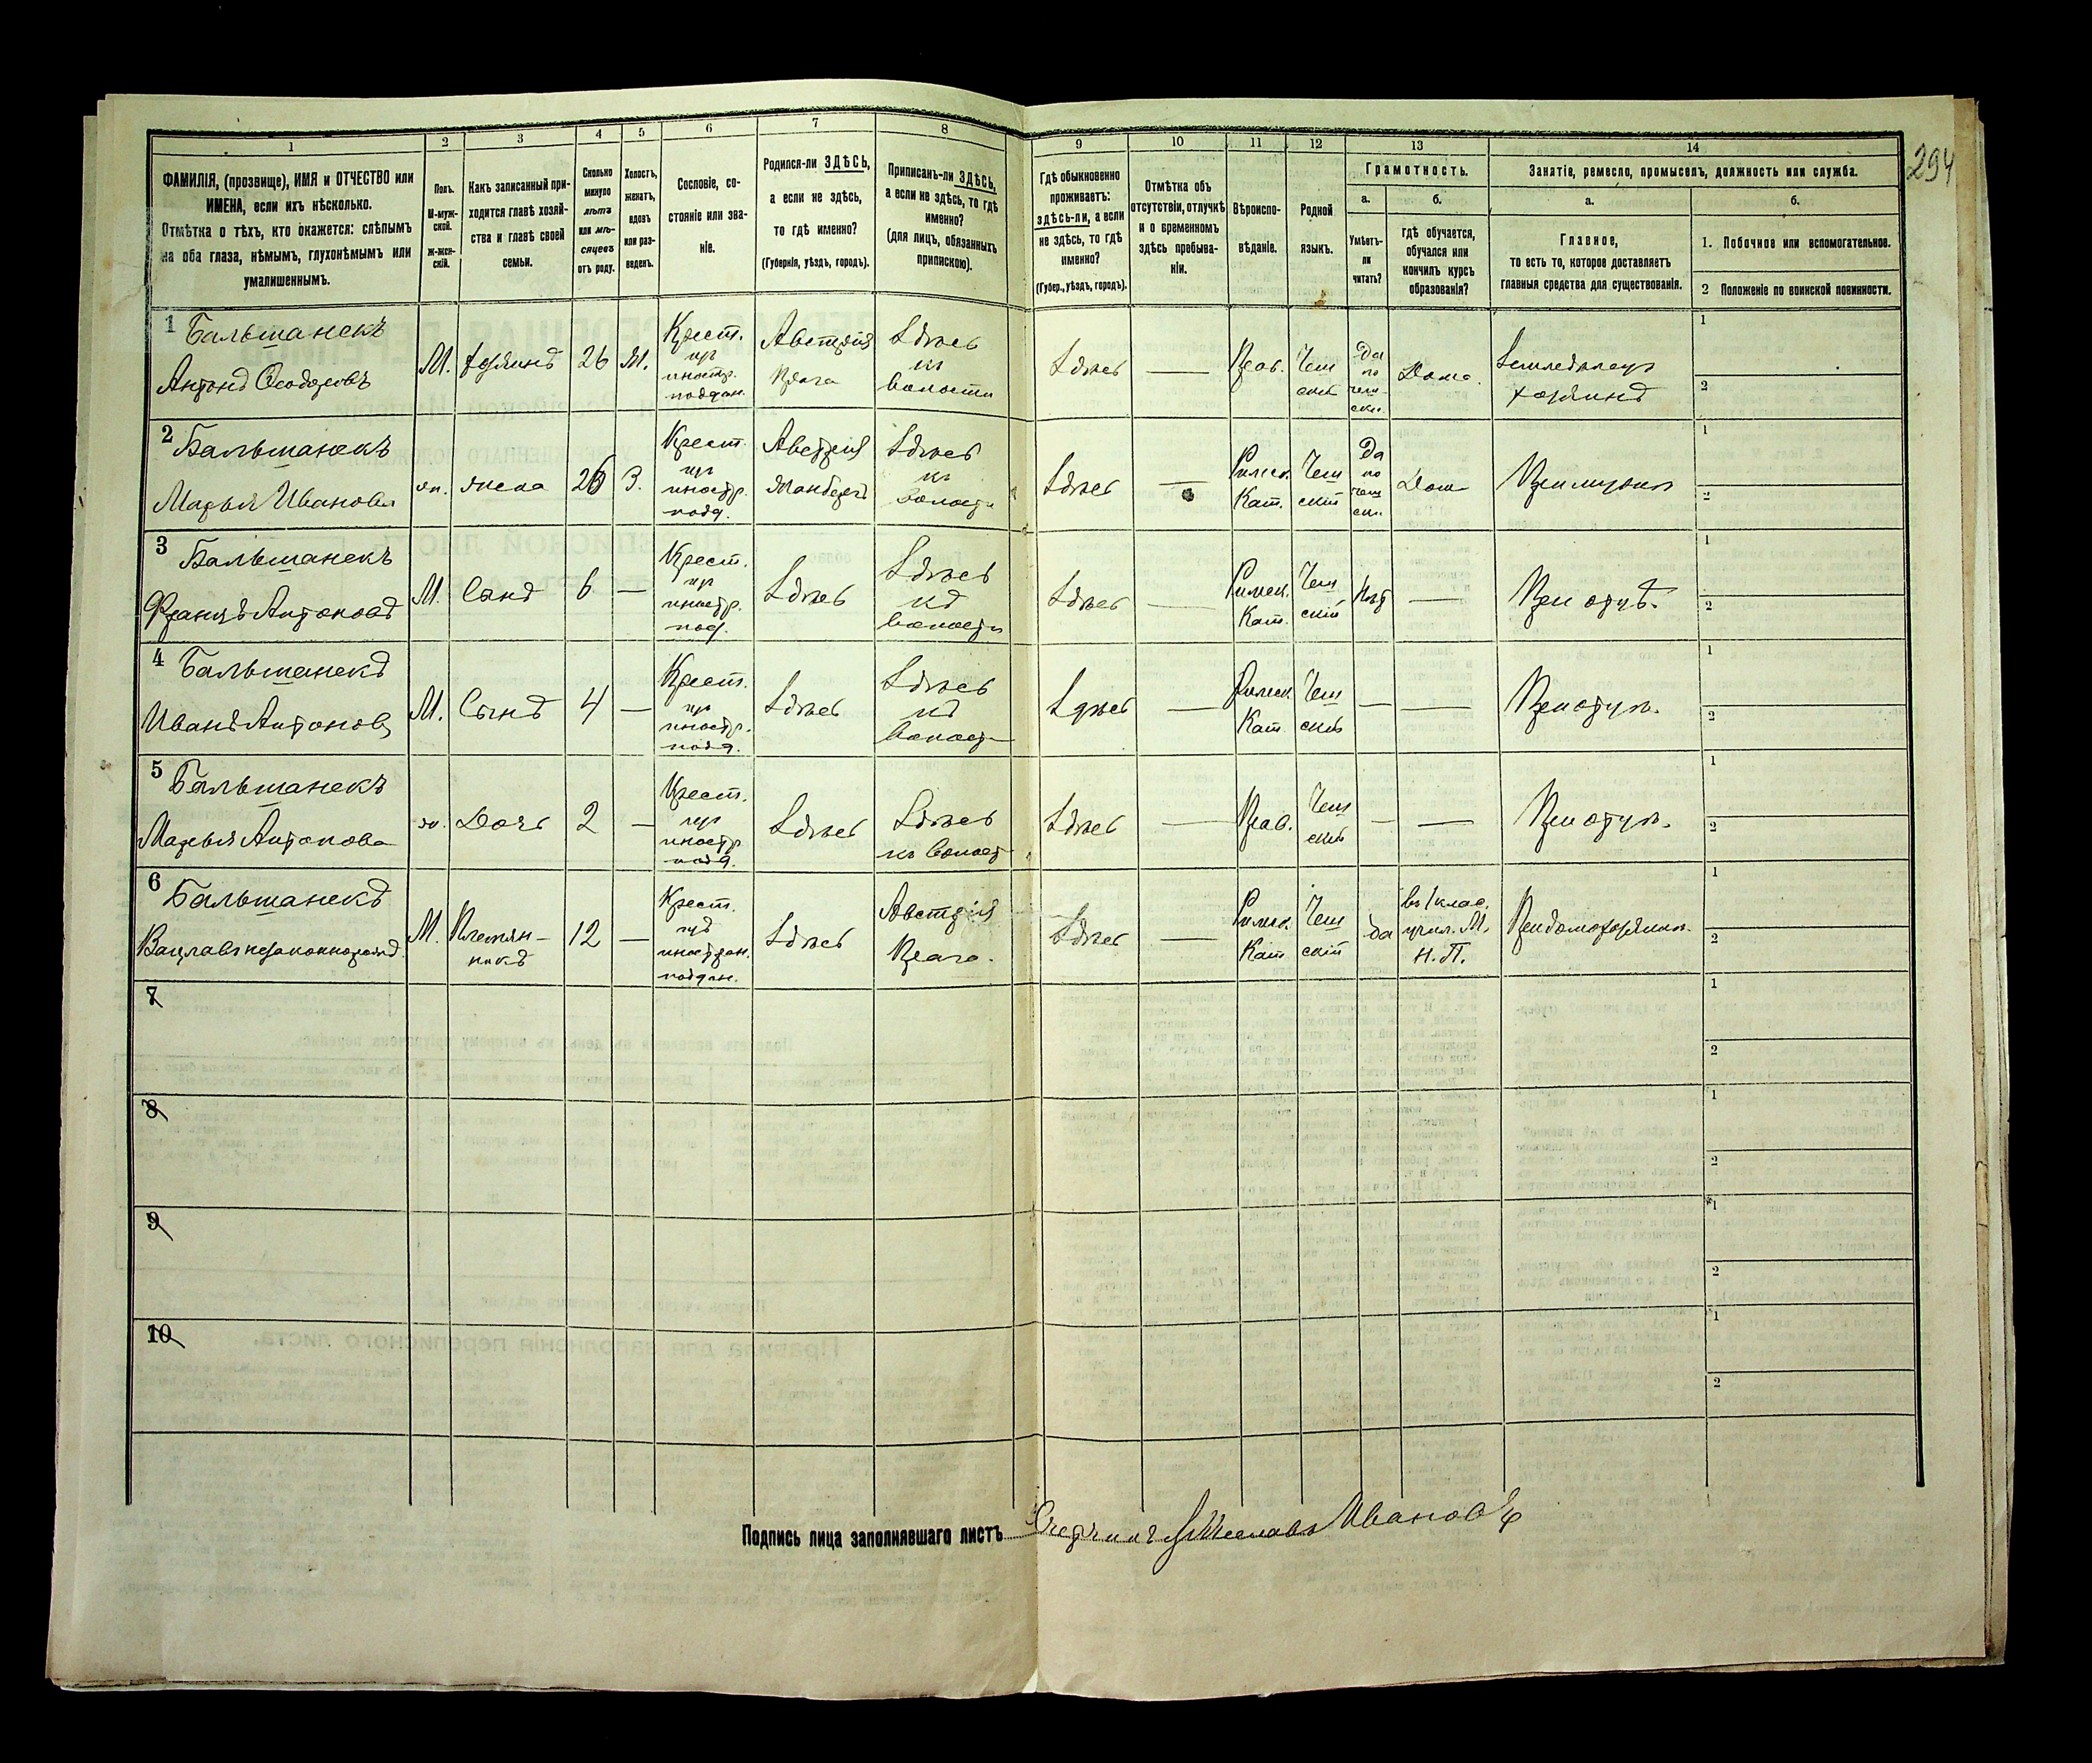 294
1
2
3
4
5
6
7
8
9
10
11
12
13
14
ФАМИЛІЯ, (прозвище), ИМЯ и ОТЧЕСТВО или
ИМЕНА, если ихъ нѣсколько.
Отмѣтка о тѣхъ, кто окажется: слѣпымъ
на оба глаза, нѣмымъ, глухонѣмымъ или
умалишеннымъ.
Полъ.
М-муж-
ской.
Ж-жен-
скій.
Какъ записанный при-
ходится главѣ хозяй-
ства и главѣ своей
семьи.
Сколько
минуло
лѣтъ
или мѣ-
сяцевъ
отъ роду.
Холостъ,
женатъ,
вдовъ
или раз-
веденъ.
Сословіе, со-
стояніе или зва-
ніе.
Родился-ли ЗДѢСЬ,
а если не здѣсь,
то гдѣ именно?
(Губернія, уѣздъ, городъ).
Приписанъ-ли ЗДѢСЬ,
а если не здѣсь, то гдѣ
именно?
(для лицъ, обязанныхъ
припискою).
Гдѣ обыкновенно
проживаетъ:
здѣсь-ли, а если
не здѣсь, то гдѣ
именно?
(Губер., уѣздъ, городъ).
Отмѣтка объ
отсутствіи, отлучкѣ
и о временномъ
здѣсь пребыва-
ніи.
Вѣроиспо-
вѣданіе.
Родной
языкъ.
Грамотность.
а.
Умѣетъ-
ли
читать?
б.
гдѣ обучается,
обучался или
кончилъ курсъ
образованія?
Занятіе, ремесло, промыселъ, должность или служба.
а.
Главное,
то есть то, которое доставляетъ
главныя средства для существованія.
б.
1. Побочное или вспомогательное.
2 Положеніе по воинской повинности.
1 Бальшанекъ
Антонъ Ѳеодоровъ
М.
26
Крест.
иностр.
поддан.
Австрія
Прага
Здѣсь
къ
волости
Здѣсь
—
Прав.
Чеш
скій
Да
по
чеш
ски.
Дома.
1
2
2 Бальшанекъ
Марья Иванова
жена
26
З.
Крест.
иностр.
подд.
Австрія
Здѣсь
къ
волости
Здѣсь
—
Римск.
Кат.
Чеш
скій
Да
по
чеш
ски.
Дом
При мужѣ
1
2
3 Бальшанекъ
Францъ Антоновъ
М.
Сынъ
6
—
Крест.
иностр.
под.
Здѣсь
Здѣсь
къ
волости
Здѣсь
—
Римск.
Кат.
Чеш
скій
Нѣтъ
—
При отцѣ.
1
2
4 Бальшанекъ
Иванъ Антоновъ
М.
Сынъ
4
—
Крест.
иностр.
подд.
Здѣсь
Здѣсь
къ
волост
Здѣсь
—
Римск.
Кат.
Чеш
скій
—
—
При отцѣ.
1
2
5 Бальшанекъ
Марья Антонова
Дочь
2
—
Крест.
иностр.
подд.
Здѣсь
Здѣсь
къ волост
Здѣсь
—
Прав.
Чеш
скій
—
—
При отцѣ.
1
2
6 Бальшанекъ
Вацлавъ незаконнорожд
М.
Племян-
никъ
12
—
Крест.
иностран.
поддан.
Здѣсь
Австрія
Прага.
Здѣсь
—
Римск.
Кат.
Чеш
скій
да
въ 1 клас.
учил. М.
Н. П.
1
2
7
1
2
8
1
2
9
1
2
10
1
2
Подпись лица заполнявшаго листъ
Ивановъ